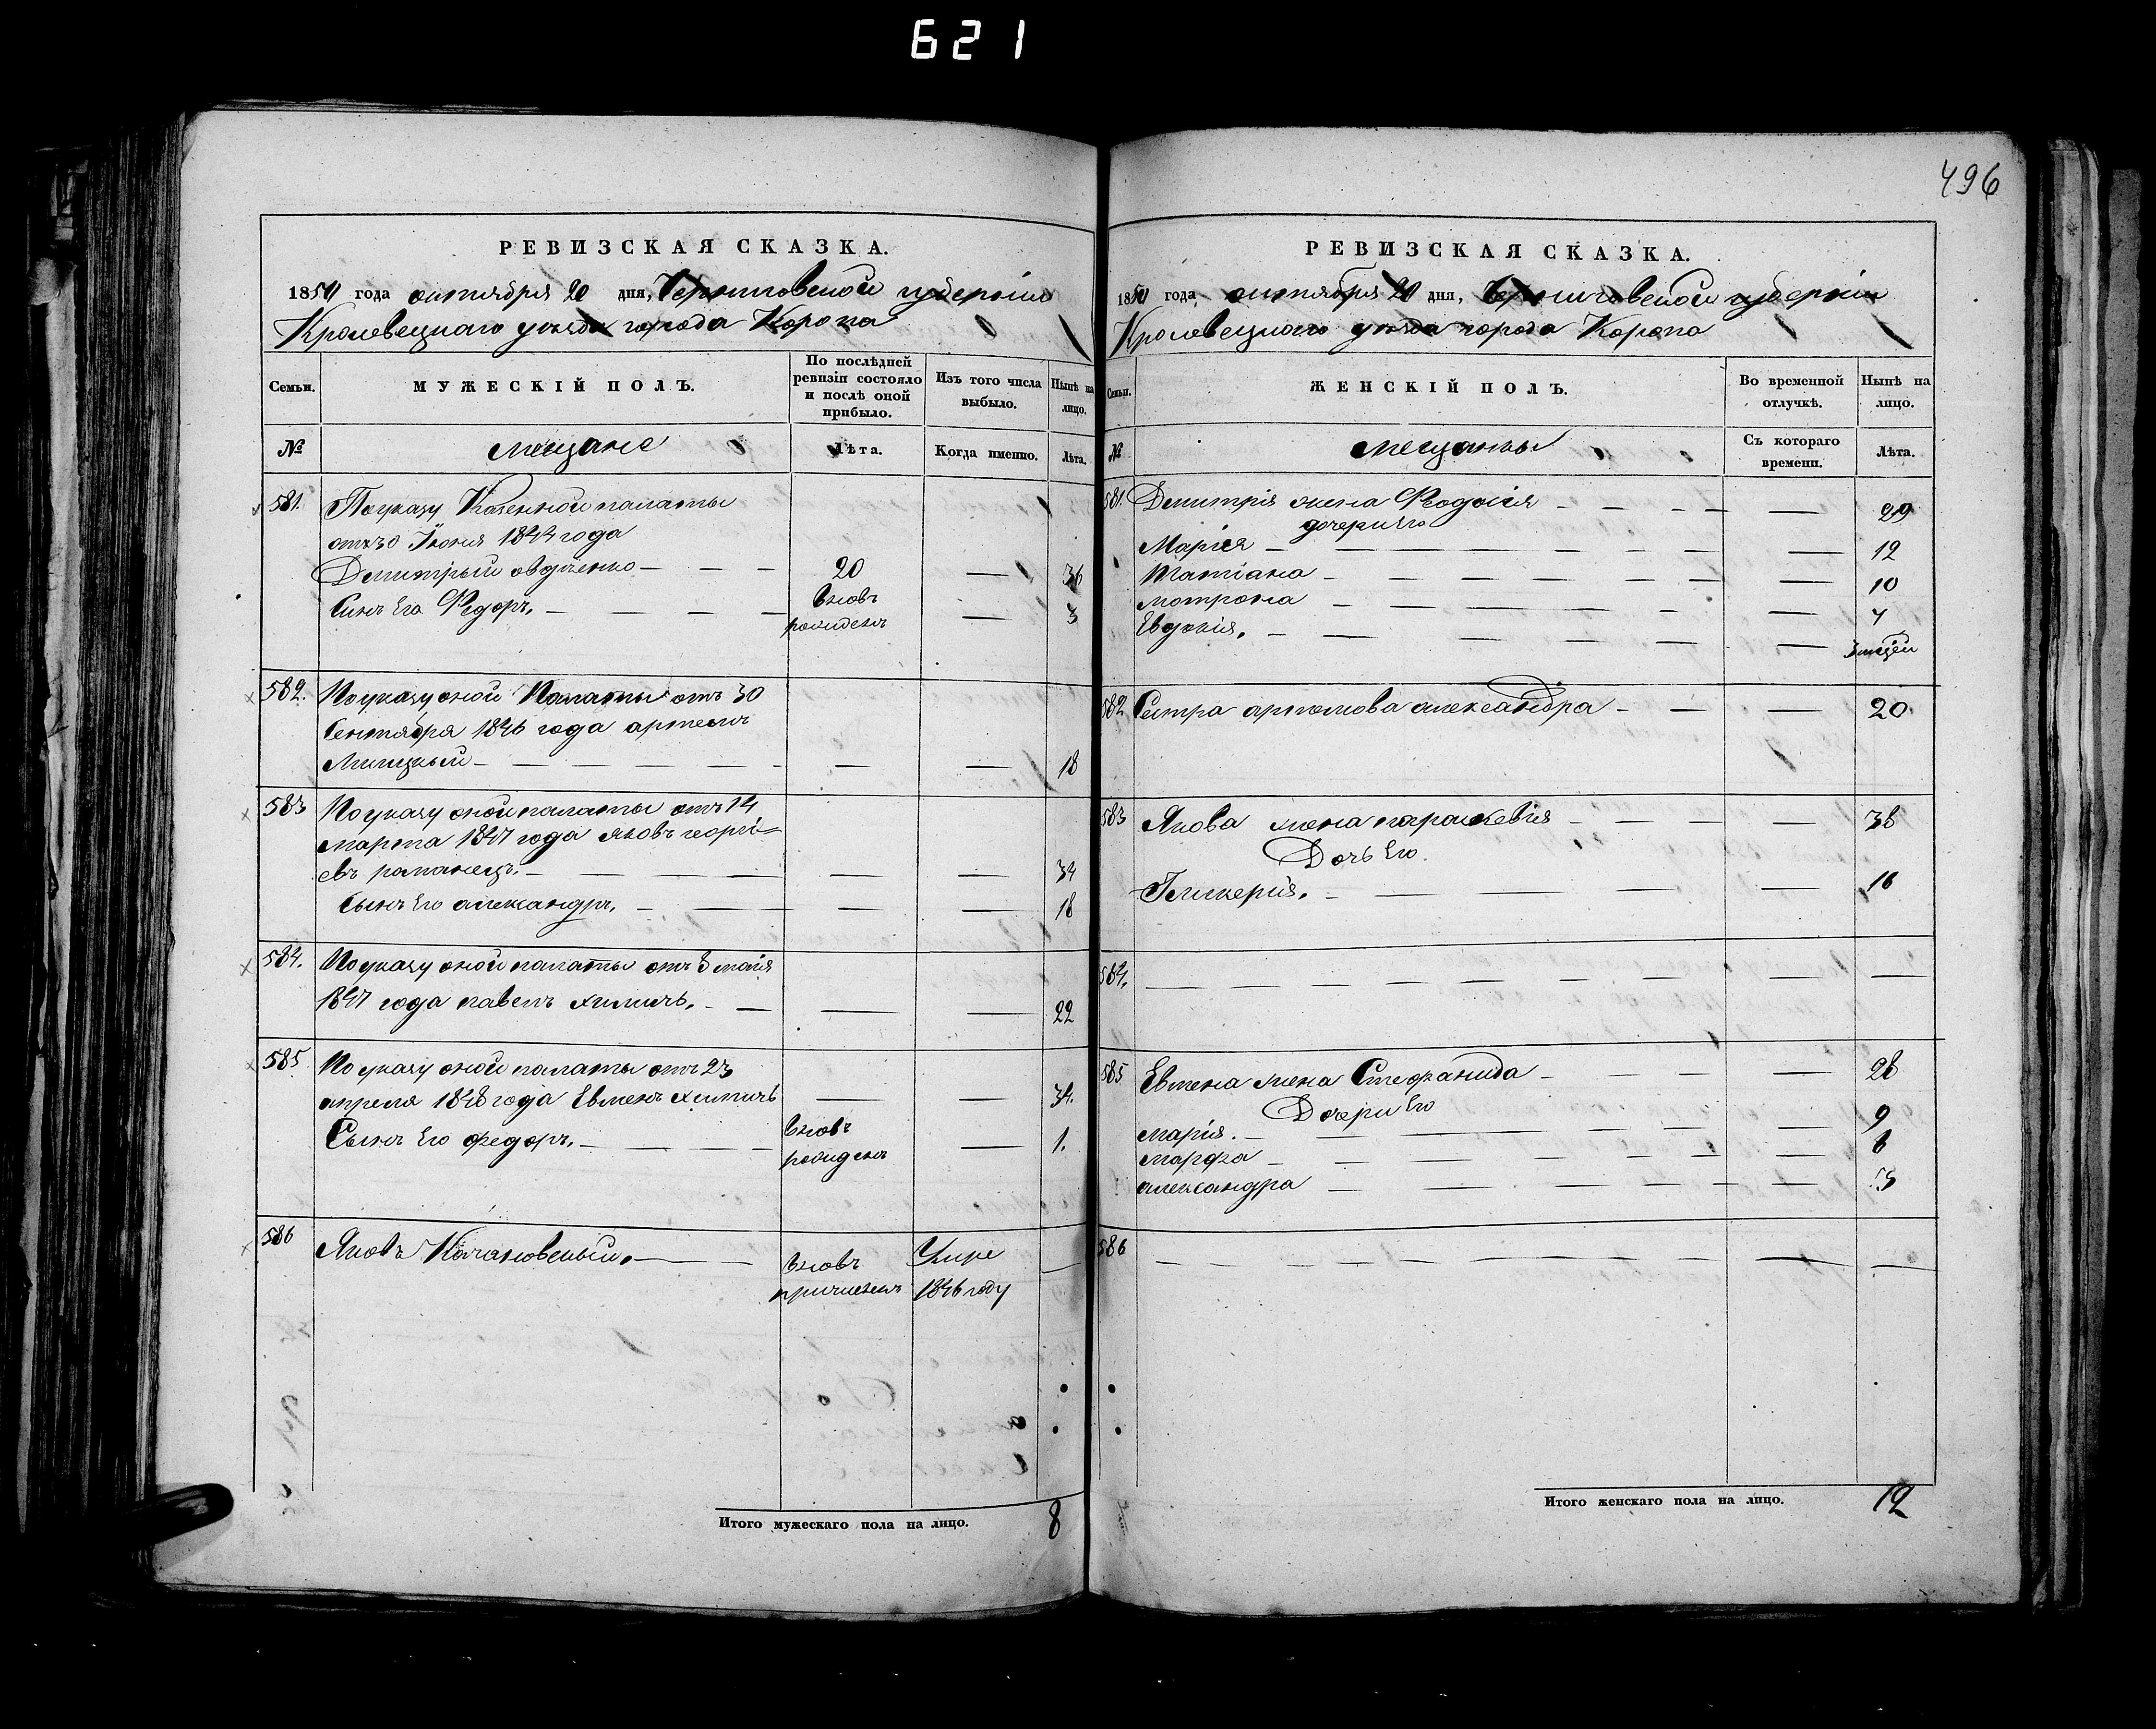 621
РЕВИЗСКАЯ СКАЗКА.
1850 года октября 20 дня, Черниговской губернии
Кролевецкаго уезда города Коропа
Семьи. МУЖЕСКІЙ ПОЛЪ. По послѣдней ревизіи состояло и послѣ оной прибыло. Изъ того числа выбыло. Нынѣ на лицо.
№ Мещане Лѣта. Когда именно. Лѣта.
581. По указу Казенной палаты
отъ 30 Іюня 1844 года
Дмитрый овдіенко 20 — 36
Сынъ Его Федоръ. вновь рожденъ — 3
582. По указу оной Палаты отъ 30
Сентября 1846 года артемъ
— — 18
583 По указу оной палаты отъ 14
марта 1847 года яковъ георгі=
евъ — — 34
Сынъ Его александръ. — — 18
584. По указу оной палаты отъ 8 маія
1847 года павелъ химичъ. — — 22
585 По указу оной палаты отъ 23
апреля 1848 года Евменъ химичъ — — 34.
Сынъ Его федоръ. вновь рожденъ — 1.
586 Яковъ Качановскый. вновь причисленъ Умре 1846 году —
Итого мужескаго пола на лицо. 8
496
РЕВИЗСКАЯ СКАЗКА.
1850 года октября 20 дня, Черниговской губерніи
Кролевецкаго уезда города Коропа
Семьи. ЖЕНСКІЙ ПОЛЪ. Во временной отлучкѣ. Нынѣ на лицо.
№ мещанки Съ котораго времени. Лѣта.
581. Дмитрія жена Феодосія — 29
дочери Его
Марія — 12
Татіана — 10
мотрона — 7
Евдокія. — 3 месяцей
582 Сестра артемова александра — 20
583 Якова жена параскевія — 38
Дочь Его.
Гликерія. — 16
584. — —
585 Евмена жена Стефанида — 28
Дочери Его
марія. — 9
марфа — 6
александра — 3
586 — —
Итого женскаго пола на лицо. 12